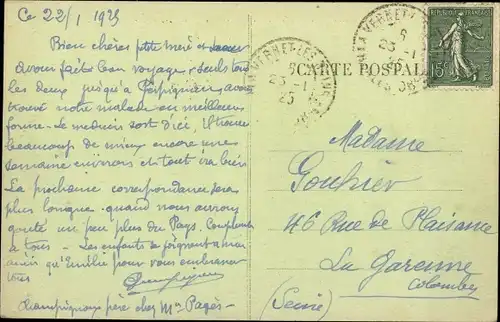 Ce 22/1 1925
Bien chères petite mère et
avons fait bon voyage seuls tous
les deux jusqu'à Perpignan avons
trouvé notre malade en meilleure
forme - Le médecin sort d'ici, il trouve
beaucoup de mieux encore une
semaine environ et tout ira bien
La prochaine correspondance sera
plus longue quand nous aurons
goûté un peu plus du Pays. Compliments
à tous - Les enfants se joignent à moi
ainsi qu'Emilie pour vous embrasser
tous
Champignons père chez Mr Pagès -
VERNET-LES-BAINS
23 - 1
25
CARTE POSTALE
VERNET-LES-BAINS
6
23 - 1
25
REPUBLIQUE FRANÇAISE
15c
Madame
Gouhier
46 Rue de Plaisance
La Garenne
Colombes
(Seine)